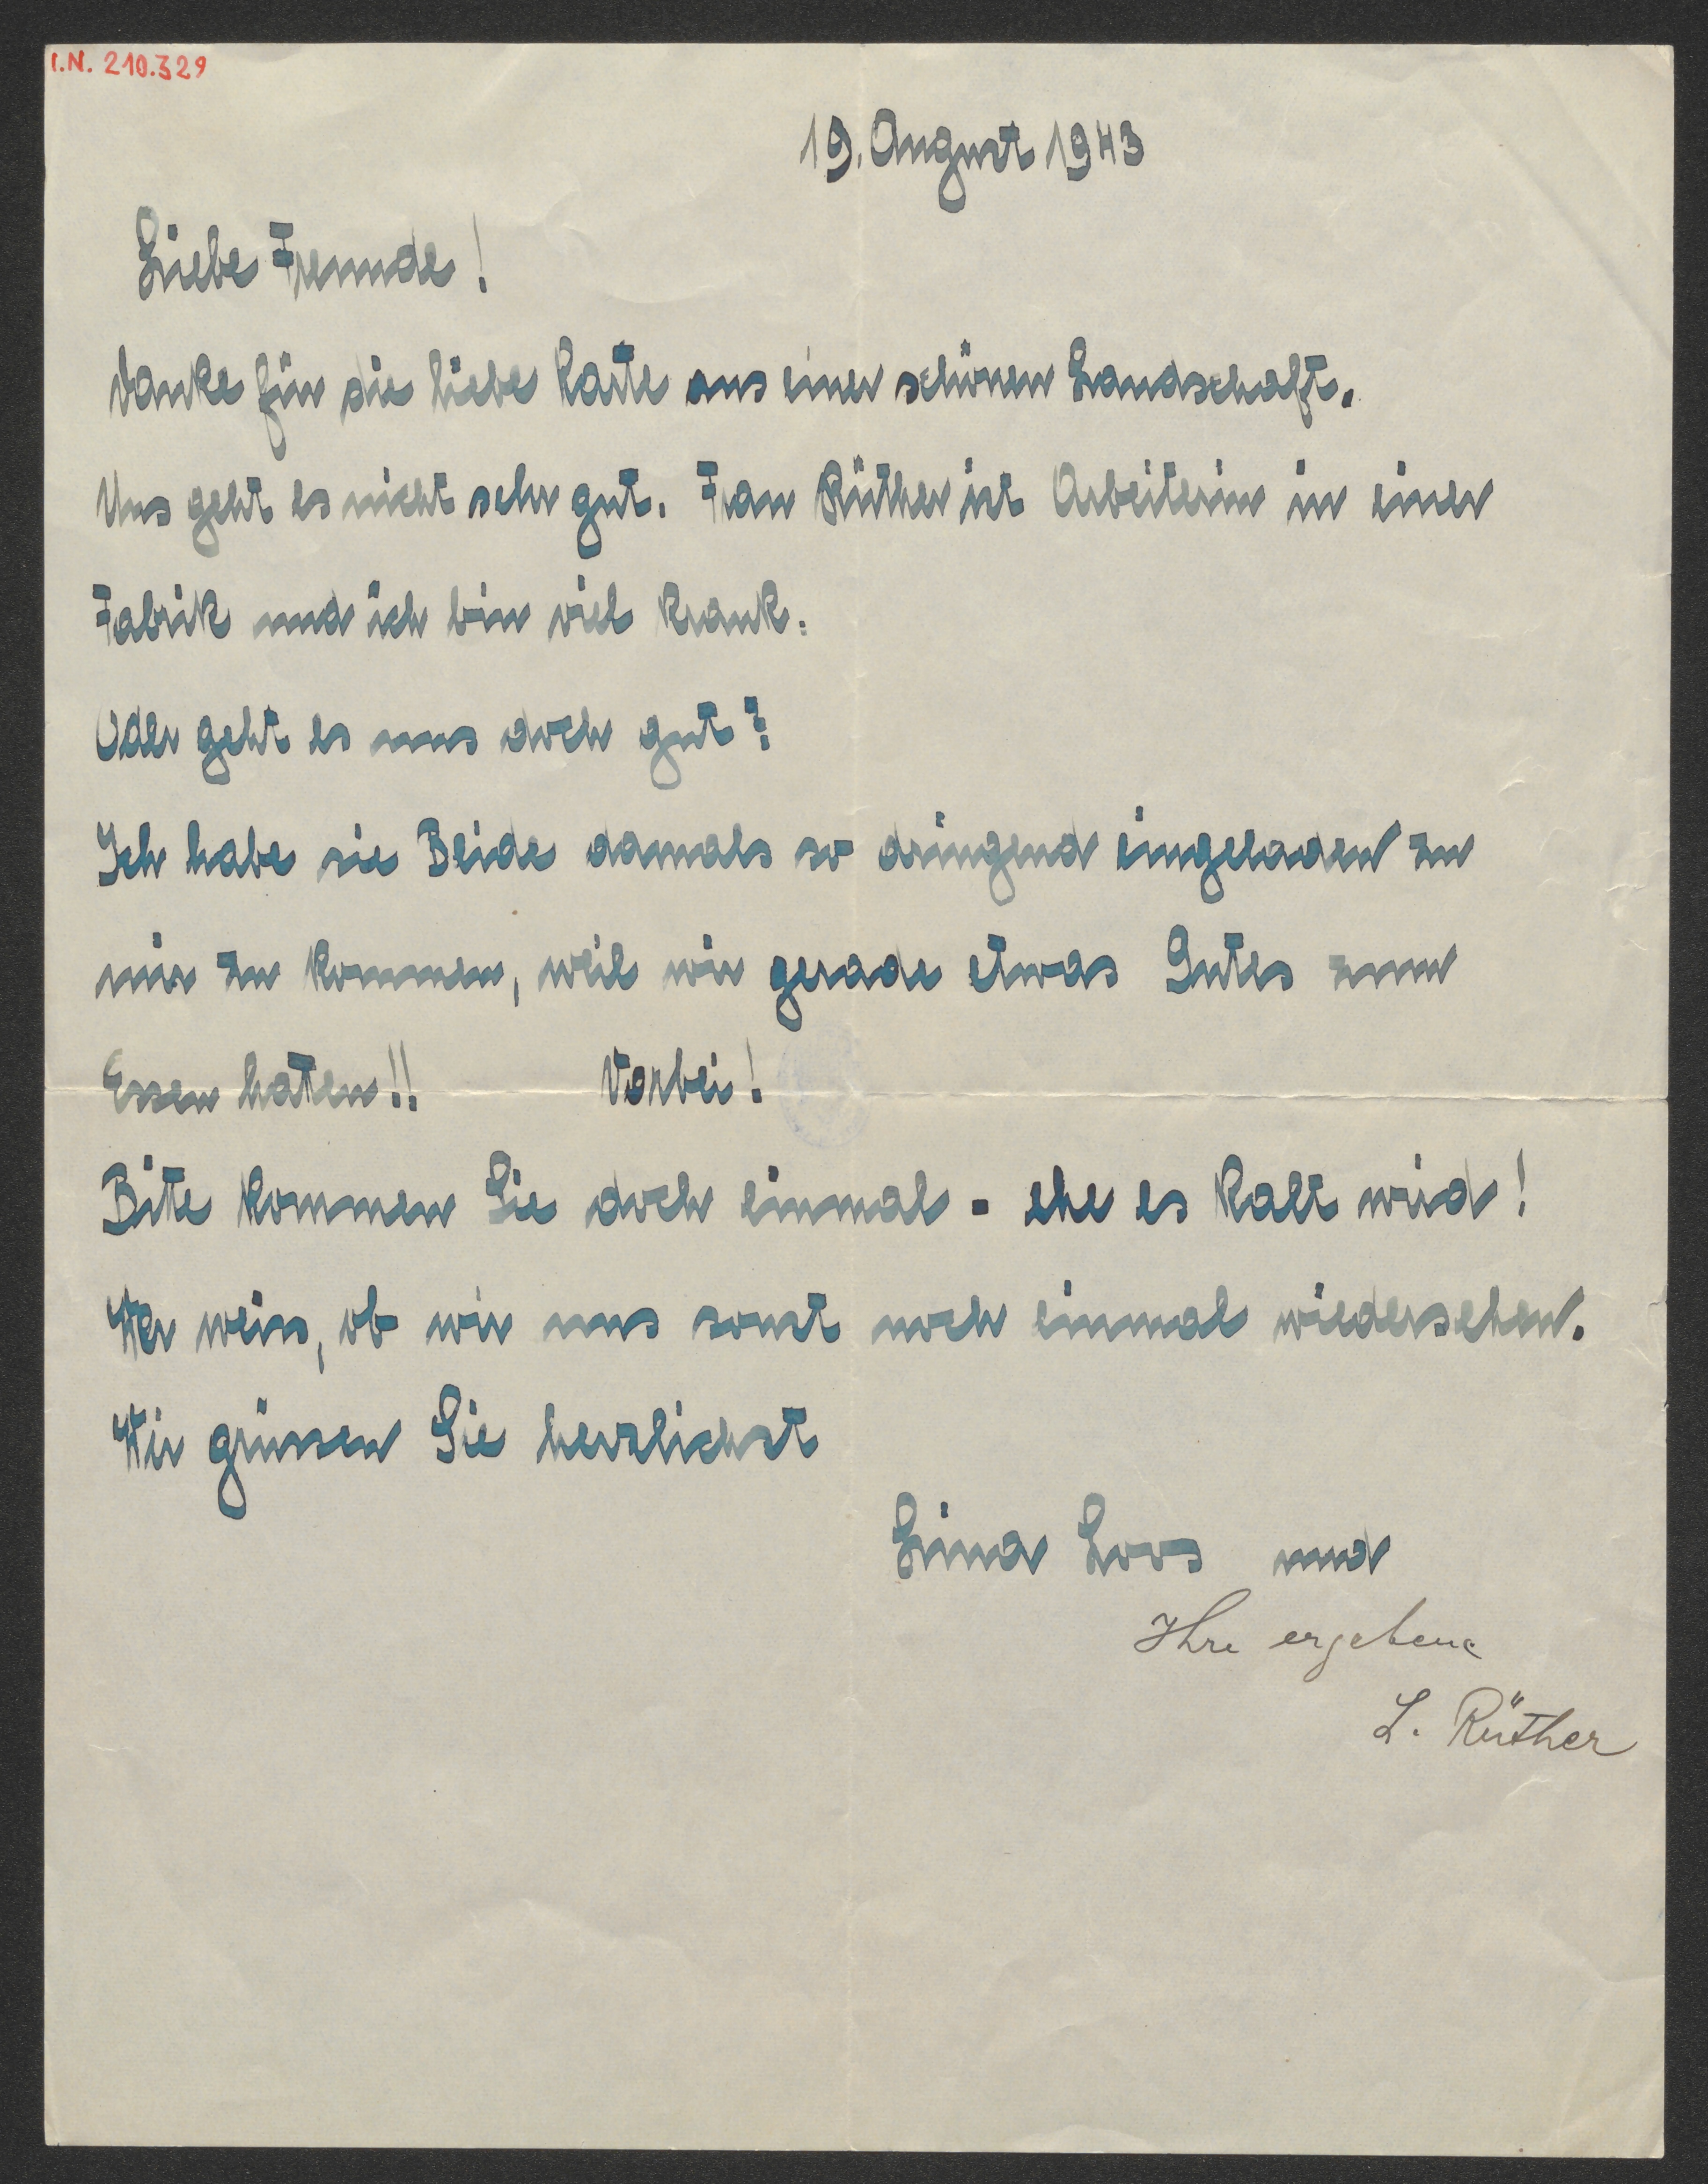 I.N. 210.329
19. August 1943
Liebe Freunde!
Danke für die liebe Karte aus einer schönen Landschaft.
Uns geht es nicht sehr gut. Frau Rüther ist Arbeiterin in einer
Fabrik und ich bin viel krank.
Oder geht es uns doch gut?
Ich habe sie Beide damals so dringend eingeladen zu
mir zu kommen, weil wir gerade etwas Gutes zum
Essen hatten!! Vorbei!
Bitte kommen Sie doch einmal - ehe es kalt wird!
Wer weiss, ob wir uns sonst noch einmal wiedersehen.
Wir grüssen Sie herzlichst
Lina Loos und
Ihre ergebene
L. Rüther